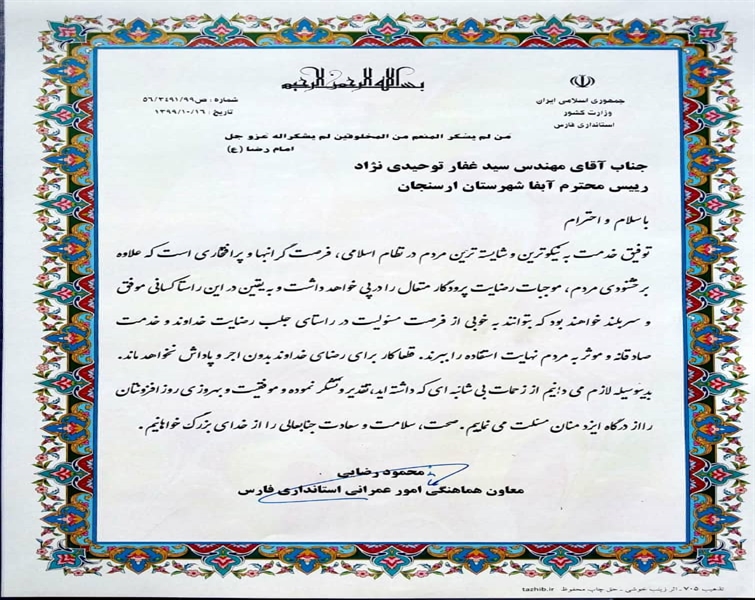 بسم الله الرحمن الرحیم
جمهوری اسلامی ایران
وزارت کشور
استانداری فارس
شماره : ص/۵۶/۳۴۹۱/۹۹
تاریخ : ۱۳۹۹/۱۰/۱۶
من لم یشکر المنعم من المخلوقین لم یشکراله عزو جل
امام رضا (ع)
جناب آقای مهندس سید غفار توحیدی نژاد
رییس محترم آبفا شهرستان ارسنجان
باسلام و احترام
توفیق خدمت به نیکوترین و شایسته ترین مردم در نظام اسلامی، فرصت گرانبها و پرافتخاری است که علاوه
بر خشنودی مردم، موجبات رضایت پرودکار متعال را در پی خواهد داشت و به یقین در این راستا کسانی موفق
و سربلند خواهند بود که بتوانند به خوبی از فرصت مسئولیت در راستای جلب رضایت خداوند و خدمت
صادقانه و موثر به مردم نهایت استفاده را ببرند. قطعا کار برای رضای خداوند بدون اجر و پاداش نخواهد ماند.
بدینوسیله لازم می دانیم از زحمات بی شائبه ای که داشته اید، تقدیر و تشکر نموده و موفقیت و بهروزی روز افزونتان
را از درگاه ایزد منان مسئلت می نماییم. صحت، سلامت و سعادت جنابعالی را از خدای بزرگ خواهانیم.
محمود رضایی
معاون هماهنگی امور عمرانی استانداری فارس
تذهیب ۷۰۵ - اثر زینب خوشی - حق چاپ محفوظ tazhib.ir